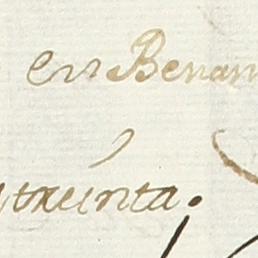 en Benam
treinta.